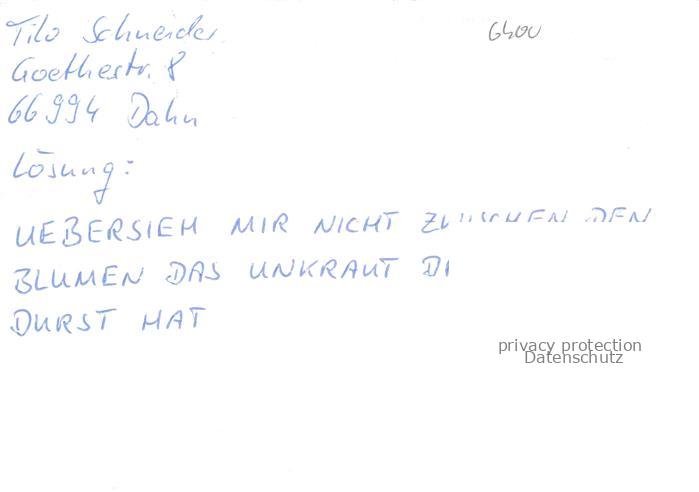 Tilo Schneider
6400
Goethestr. 8
66994 Dahn
Lösung:
UEBERSIEH MIR NICHT ZWISCHEN DEN
BLUMEN DAS UNKRAUT
DURST HAT
privacy protection
Datenschutz